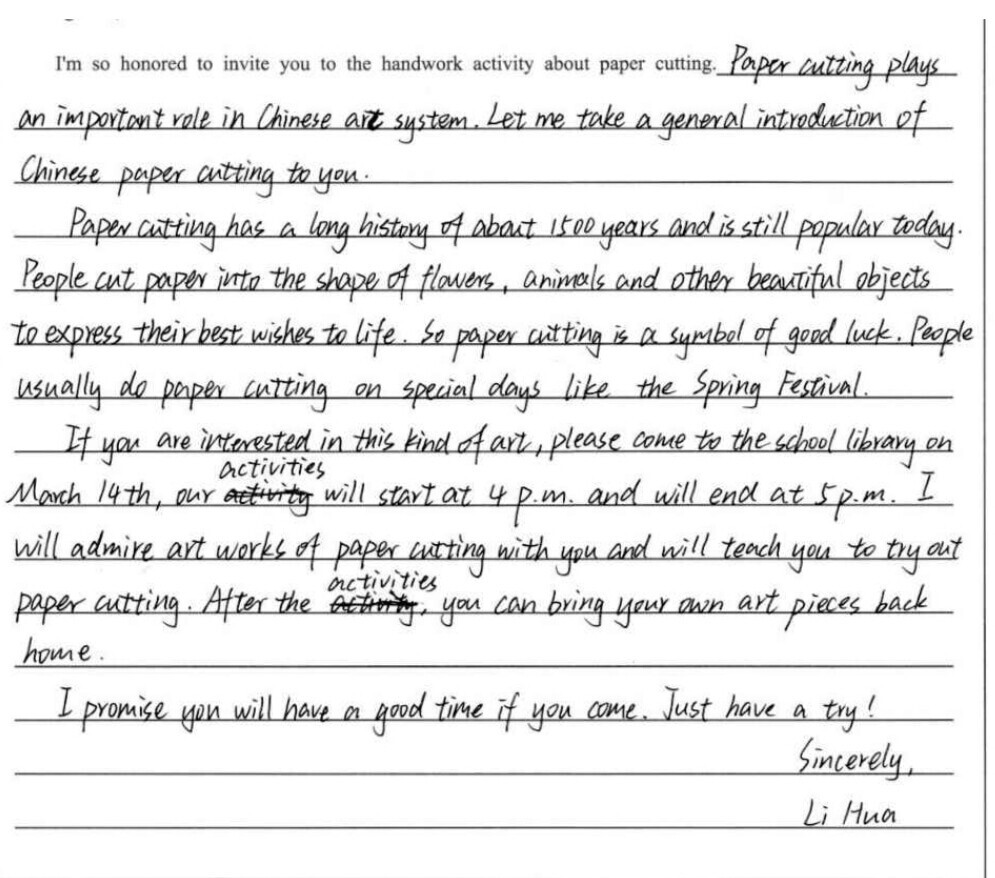 I'm so honored to invite you to the handwork activity about paper cutting. Paper cutting plays
an important role in Chinese art system. Let me take a general introduction of
Chinese paper cutting to you.
Paper cutting has a long history of about 1500 years and is still popular today.
People cut paper into the shape of flowers, animals and other beautiful objects
to express their best wishes to life. So paper cutting is a symbol of good luck. People
usually do paper cutting on special days like the Spring Festival.
If you are interested in this kind of art, please come to the school library on
activities
March 14th, our activity will start at 4 p.m. and will end at 5 p.m. I
will admire art works of paper cutting with you and will teach you to try out
activities
paper cutting. After the activity, you can bring your own art pieces back
home.
I promise you will have a good time if you come. Just have a try!
Sincerely,
Li Hua